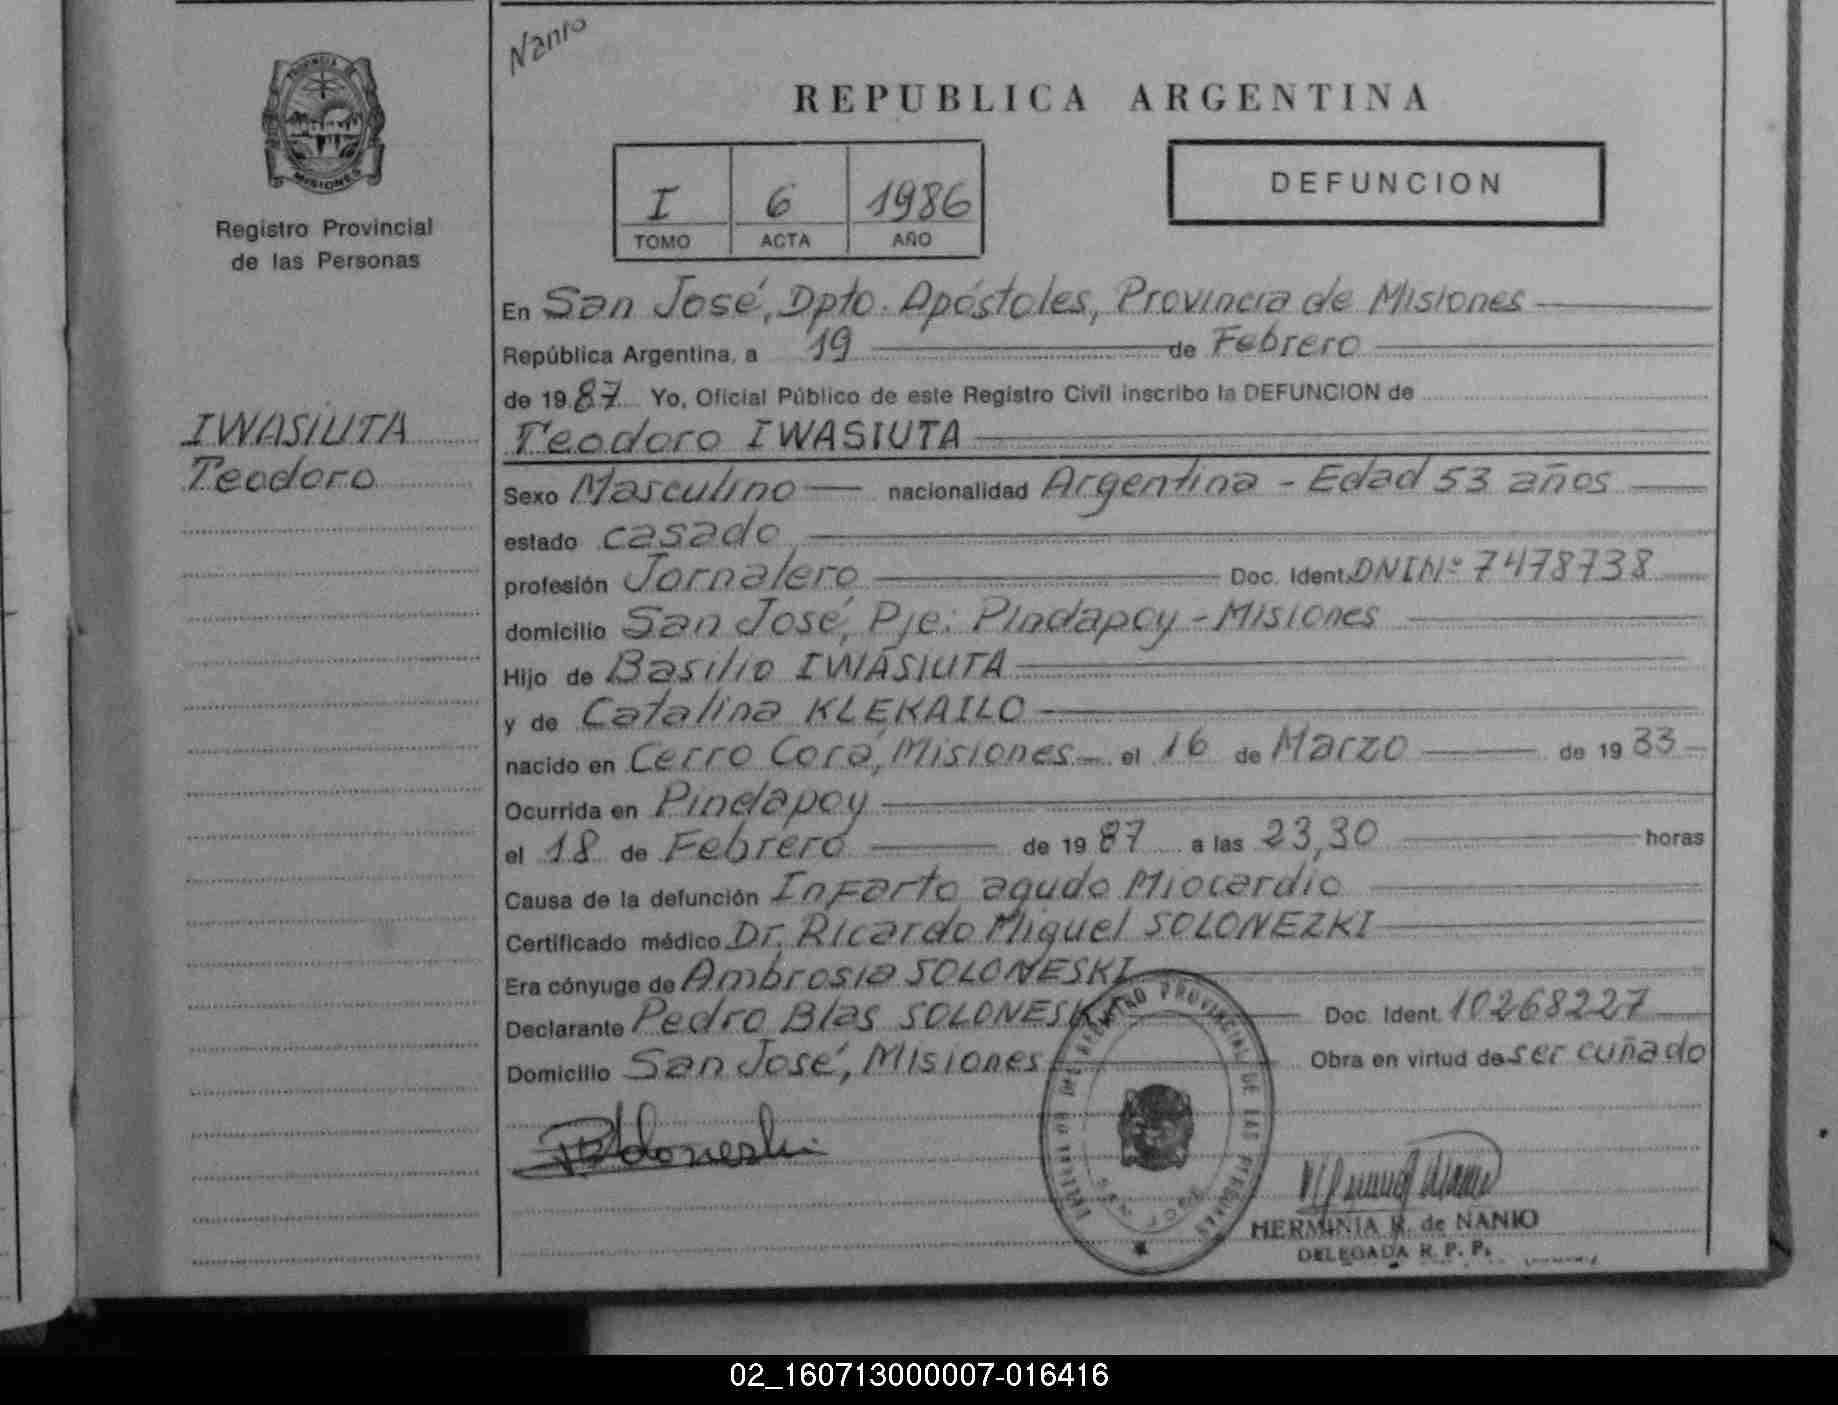 Nanio
PROVINCIA DE
MISIONES
Registro Provincial
de las Personas
REPUBLICA ARGENTINA
I 6 1986
TOMO ACTA AÑO
DEFUNCION
IWASIUTA
Teodoro
En San José, Dpto. Apóstoles, Provincia de Misiones
República Argentina, a 19 de Febrero
de 1987 Yo, Oficial Público de este Registro Civil inscribo la DEFUNCION de
Teodoro IWASIUTA
Sexo Masculino nacionalidad Argentina - Edad 53 años
estado casado
profesión Jornalero Doc. Ident. DNI Nº 7478738
domicilio San José, Pje: Pindapoy - Misiones
Hijo de Basilio IWASIUTA
y de Catalina KLEKAILO
nacido en Cerro Corá, Misiones el 16 de Marzo de 1933
Ocurrida en Pindapoy
el 18 de Febrero de 1987 a las 23,30 horas
Causa de la defunción Infarto agudo Miocardio
Certificado médico Dr. Ricardo Miguel SOLONEZKI
Era cónyuge de Ambrosia SOLONESKI
Declarante Pedro Blas SOLONESKI Doc. Ident. 10268227
Domicilio San José, Misiones Obra en virtud de ser cuñado
DEL REGISTRO PROVINCIAL DE LAS PERSONAS
SAN JOSE
HERMINIA R. de NANIO
DELEGADA R. P. P.
02_160713000007-016416